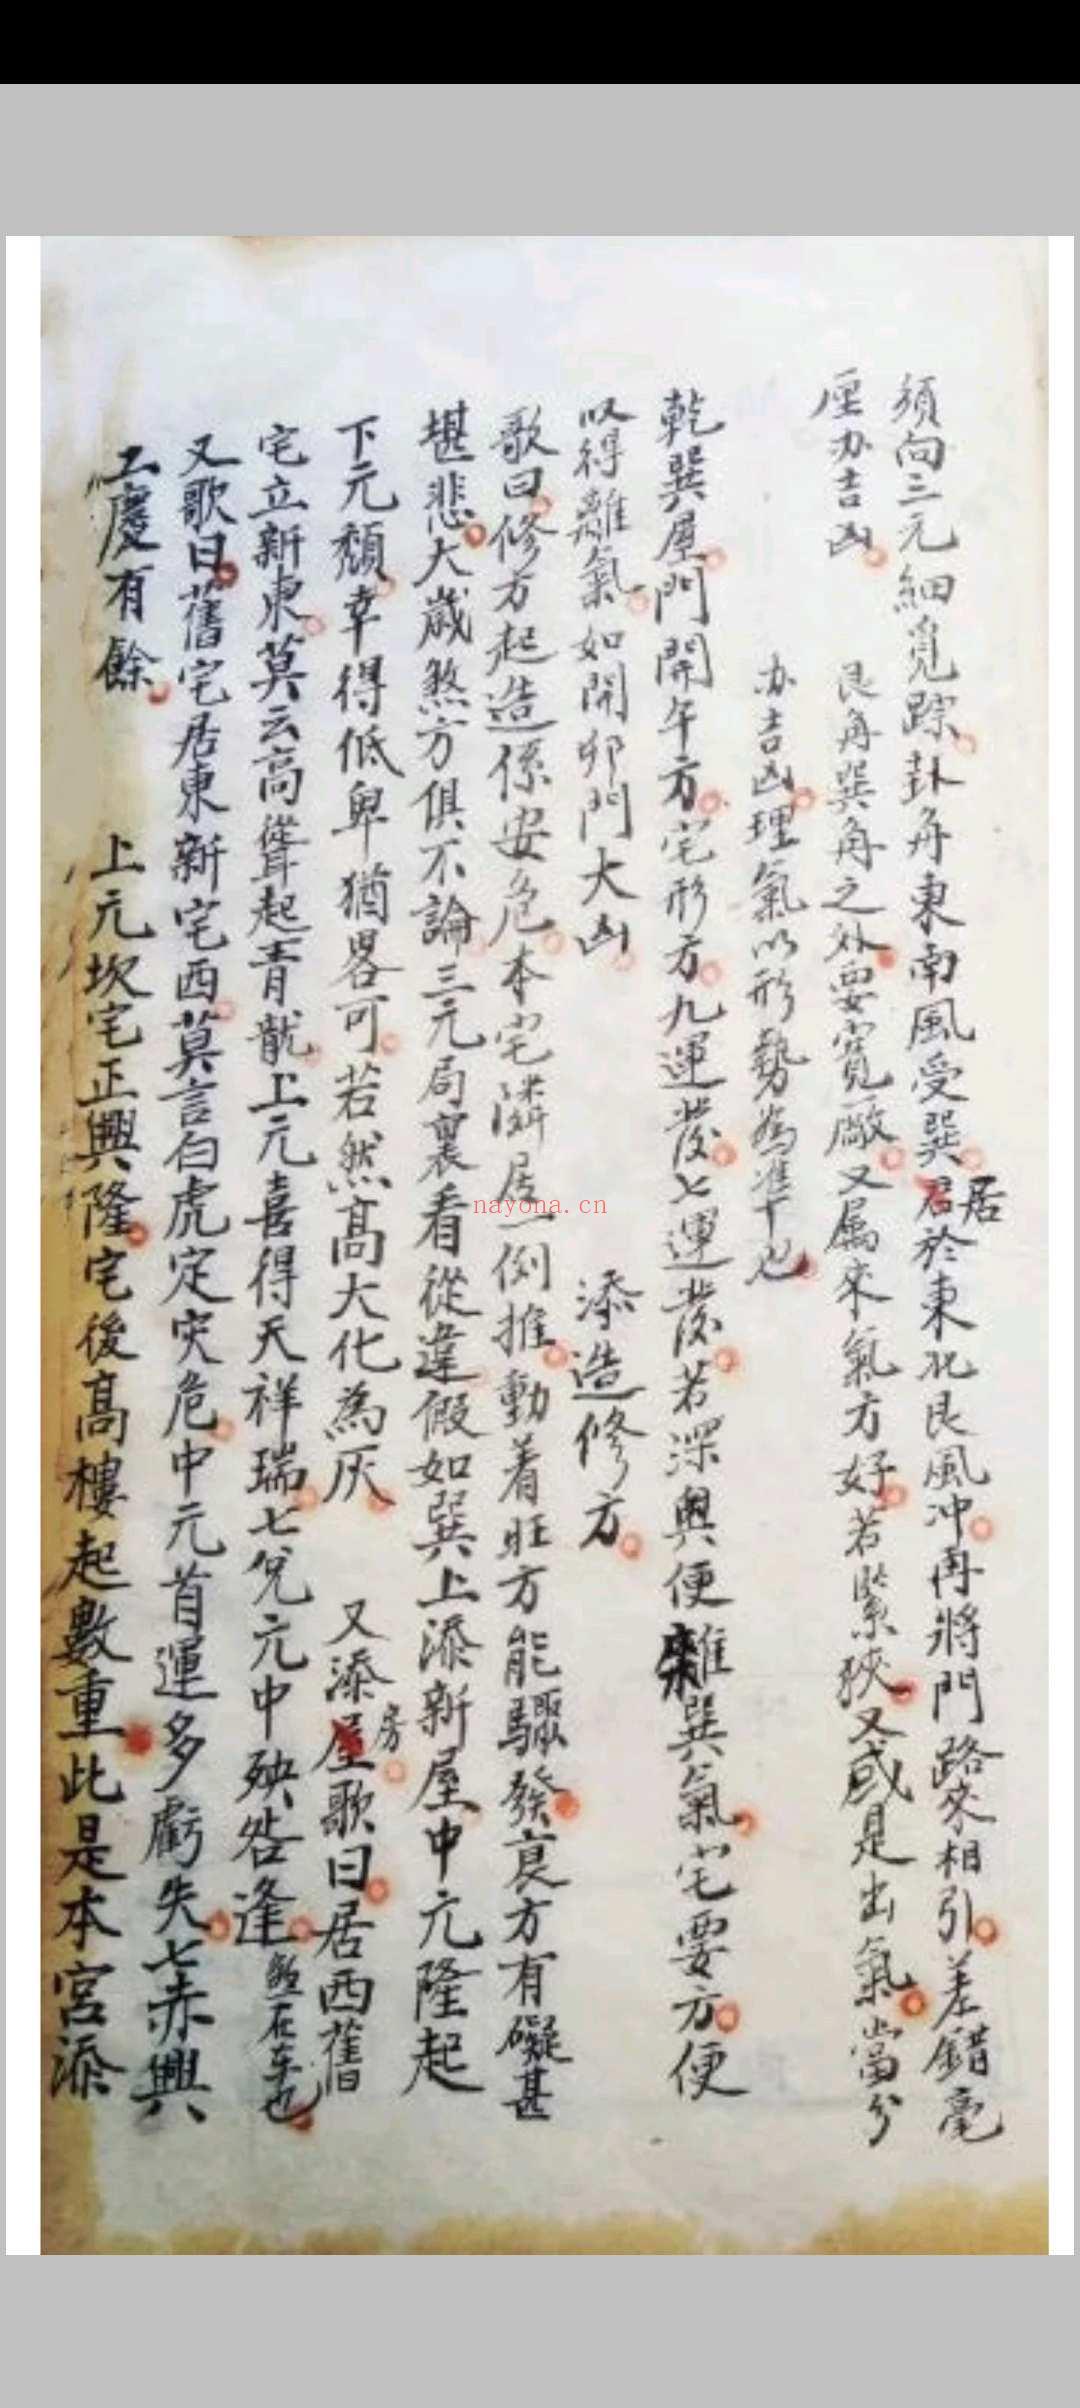 須向三元細覓踪卦舟東南風受巽居於東北艮風冲再將門路來相引差錯毫
厘办吉凶 艮舟巽舟之外要寬厰又属來氣方好若紧狹又或是出氣當分
办吉凶理氣以形勢為準也
乾巽屋門開午方宅形方九運發七運發若深奥便雜巽氣宅要方便
以得離氣如開卯門大凶 添造修方
歌曰修方起造係安危本宅隣居一例推動着旺方能驟發衰方有礙甚
堪悲大歲煞方俱不論三元局裏看從違假如巽上添新屋中元隆起
下元頹幸得低卑猶畧可若然高大化為灰 又添房歌曰居西舊
宅立新東莫云高聳起青龍上元喜得天祥瑞七兊元中殃咎逢煞在车也
又歌曰舊宅居東新宅西莫言白虎定灾危中元首運多虧失七赤興
工慶有餘 上元坎宅正興隆宅後高樓起數重此是本宮添
nayona.cn